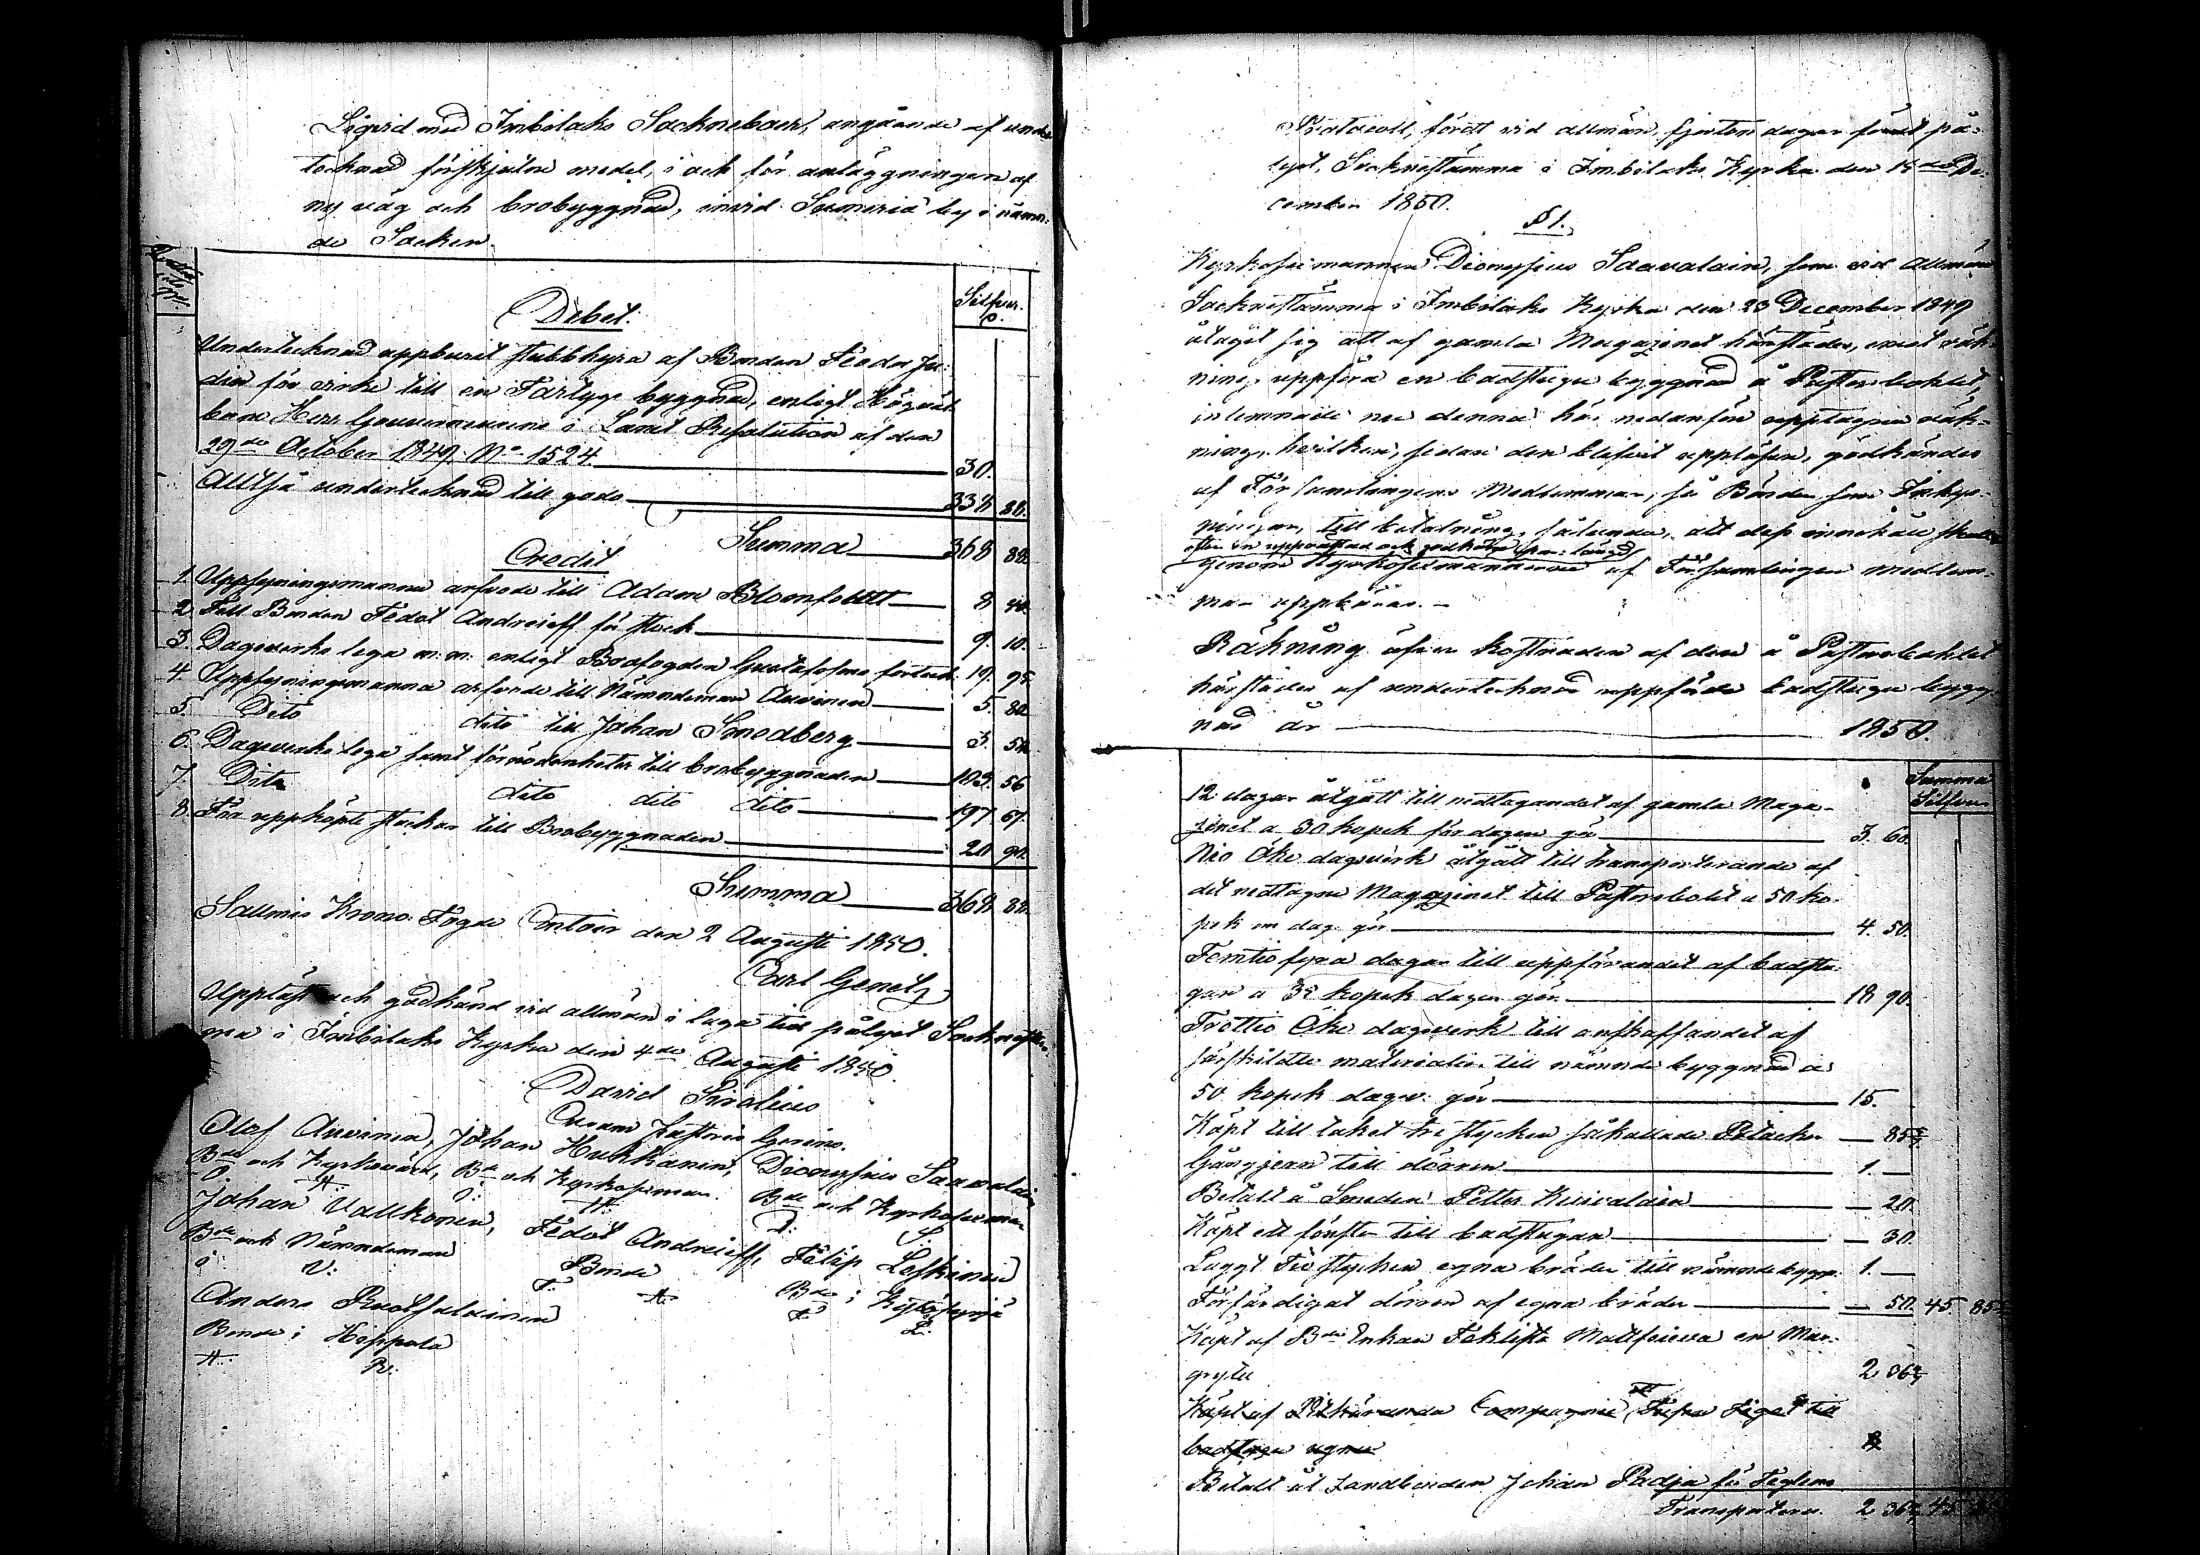 Liqvid med Imbilaks Sockneboer, angående af under
tecknad förskjutne medel, i och för anläggningen af
ny väg och brobyggnad, invid Sumeria by i nämn-
de Socken.
Debet.
Silfver.
Undertecknad uppburit stubbhyra af Bonden Feodor Ju-
din för virke till en Fartygs byggnad, enligt Högväl-
borne Herr Gouverneurens i Länet Resolution af den
29de October 1849. No 1524. 30.
Alltså undertecknad till godo 338 88.
Summa 368 88.
Credit
1. Uppsyningsmanna arfvode till Adam Blomfeldt 8 40.
2. Till Bonden Fedot Andreieff för stock 9. 10.
3. Dagsverks lega m. m. enligt Brofogden Gustafssons förteck. 19. 95.
4. Uppsyningsmanna arfvode till Nämndeman Auvinen 5. 80
5. Dito dito till Johan Smedberg 3. 50
6. Dagsverks lega samt förnödenheter till brobyggnaden 103. 56
7. Dito dito dito dito 197 67.
8. För uppköpte stockar till Brobyggnaden 20 90.
Summa 368. 88.
Sallmis Krono Fogde Contoir den 2 Augusti 1850.
Carl Genetz
Uppläst och godkänd vid allmän i laga tid pålyst Socknestäm-
ma i Imbilaks Kyrka den 4de Augusti 1850.
David Sirelius
Curam pastoris Gerens.
Olof Auvinen, Johan Hukkanen, Dionysius Saavalain
Bde och Kyrkovärd, Bde och Kyrkosexman. Bde och Kyrkosexman
O: A: J: H: D: S:
Johan Vallkonen, Fedot Andreieff, Filip Leskinen
Bde och Nämndeman Bonde Bde i Kytösyrjä
J: V: F: A: F: L:
Anders Ruotsalainen
Bonde i Hippola
A: R:
Protocoll, fördt vid allmän, fjorton dagar förut på-
lyst, Socknestämma i Imbilaks Kyrka den 15de De-
cember 1850.
§ 1.
Kyrkosexmannen Dionysius Saavalain, som vid Allmän
Socknestämma i Imbilaks Kyrka den 23 December 1849
åtagit sig att af gamla Magazinet härstädes, emot räk-
ning, uppföra en badstugu byggnad å Pastorsbohlet,
inlemnade nu denna här nedanför upptagna räk-
ning, hvilken, sedan den blifvit uppläsen, godkändes
af Församlingens Medlemmar, så Bönder som Inhyses-
ningar, till betalning, sålunda, att dess innehåll skulle
efter en upprättad och godkänd längd
genom Kyrkosexmännerne af Församlingens Medlem-
mar uppbäras. -
Räkning öfver kostnaden af den å Pastorsbohlet
härstädes af undertecknad uppförde badstugu bygg-
nad år 1850.
Summa
Silfver
12 dagar åtgått till nedtagandet af gamla Maga-
zinet a 30 kopek för dagen gör 3. 60.
Nio Öke dagsverk åtgått till transporterande af
det nedtagne Magazinet till Pastorsbolet a 50 ko-
pek om dag. gör 4. 50.
Femtio fyra dagar till uppförandet af badstu-
gan a 35 kopek dagen gör 18 90.
Trettio Öke dagsverk till anskaffandet af
särskildte materialier till nämnde byggnad a
50 kopek dagsv: gör 15.
Köpt till taket tre stycken såkallade Potacker 85 5/7
Gångjern till dörren 1. —
Betalt å Smeden Petter Hirvalain — 20.
Köpt ett fönster till badstugan — 30.
Laggt Tio stycken egna bräder till nämnde bygg. 1. —
Förfärdigat dörren af egna bräder — 50. 45 85 5/7
Köpt af Bde Enkan Feklista Mattfeieva en Mur-
gryta 2 36 4/7
Köpt af Pitkäranda Compagnie ett Tusen Tegel till
badstugu ugnen
Betalt åt Landbonden Johan Padja för Teglens
Transporteras. 2 36 4/7 45